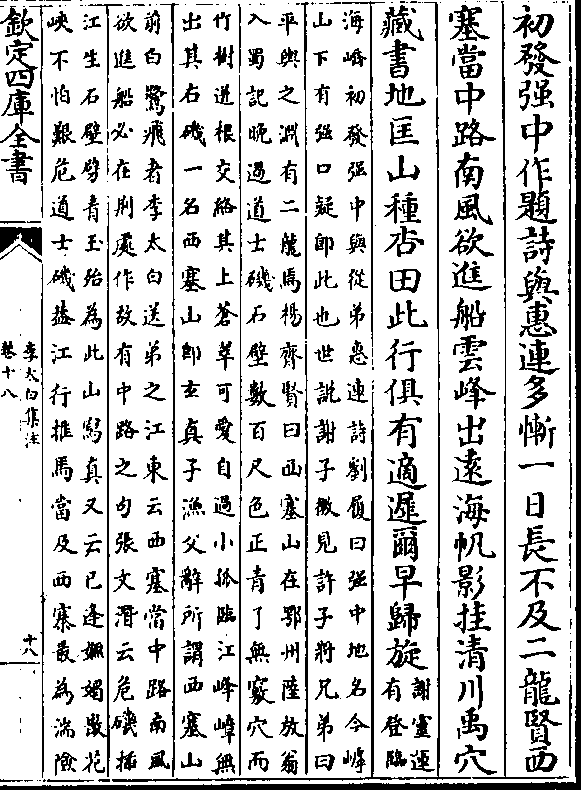 初發强中作題詩與惠連多慚一日長不及二龍賢西
塞當中路南風欲進船雲峰出遠海帆影挂清川禹穴
藏書地匡山種杏田此行俱有適遲爾早歸旋
謝靈運
有登臨
海嶠初發强中與從弟惠連詩劉履曰强中地名今嵊
山下有强口疑即此也世説謝子微見許子將兄弟曰
平輿之淵有二龍焉楊齊賢曰西塞山在鄂州陸放翁
入蜀記晚過道士磯石壁數百尺色正青了無竅穴而
竹樹迸根交絡其上蒼翠可愛自過小孤臨江峰嶂無
出其右磯一名西塞山即玄真子漁父辭所謂西塞山
前白鷺飛者李太白送弟之江東云西塞當中路南風
欲進船必在荆處作故有中路之句張文潛云危磯插
江生石壁劈青玉殆為此山寫真又云已逢嫵媚散花
峽不怕艱危道士磯蓋江行推馬當及西塞最為湍險
欽定四庫全書
李太白集注
卷十八
十八